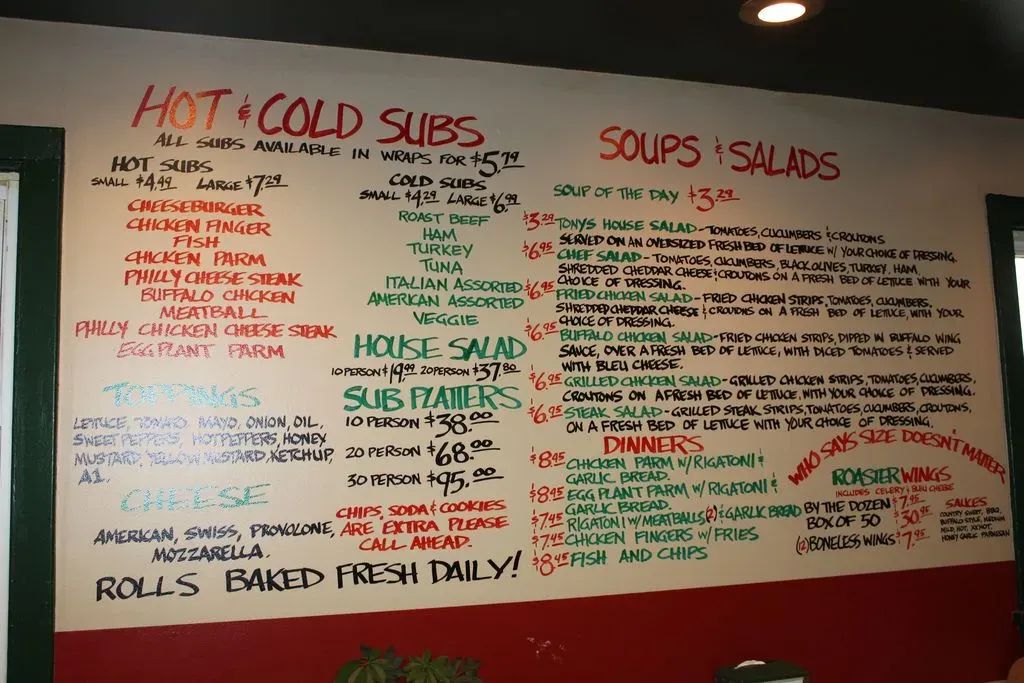 HOT & COLD SUBS
ALL SUBS AVAILABLE IN WRAPS FOR $5.79
HOT SUBS
SMALL $4.49 LARGE $7.29
CHEESEBURGER
CHICKEN FINGER
FISH
CHICKEN PARM
PHILLY CHEESE STEAK
BUFFALO CHICKEN
MEATBALL
PHILLY CHICKEN CHEESE STEAK
EGGPLANT PARM
TOPPINGS
LETTUCE, TOMATO, MAYO, ONION, OIL,
SWEET PEPPERS, HOT PEPPERS, HONEY
MUSTARD, YELLOW MUSTARD, KETCHUP,
A1.
CHEESE
AMERICAN, SWISS, PROVOLONE,
MOZZARELLA.
COLD SUBS
SMALL $4.29 LARGE $6.99
ROAST BEEF
HAM
TURKEY
TUNA
ITALIAN ASSORTED
AMERICAN ASSORTED
VEGGIE
HOUSE SALAD
10 PERSON $19.99 20 PERSON $37.80
SUB PLATTERS
10 PERSON $38.00
20 PERSON $68.00
30 PERSON $95.00
CHIPS, SODA & COOKIES
ARE EXTRA PLEASE
CALL AHEAD.
ROLLS BAKED FRESH DAILY!
SOUPS & SALADS
SOUP OF THE DAY $3.29
$3.29 TONYS HOUSE SALAD - TOMATOES, CUCUMBERS & CROUTONS
SERVED ON AN OVERSIZED FRESH BED OF LETTUCE W/ YOUR CHOICE OF DRESSING.
$6.95 CHEF SALAD - TOMATOES, CUCUMBERS, BLACK OLIVES, TURKEY, HAM,
SHREDDED CHEDDAR CHEESE & CROUTONS ON A FRESH BED OF LETTUCE WITH YOUR
CHOICE OF DRESSING.
$6.95 FRIED CHICKEN SALAD - FRIED CHICKEN STRIPS, TOMATOES, CUCUMBERS,
SHREDDED CHEDDAR CHEESE & CROUTONS ON A FRESH BED OF LETTUCE, WITH YOUR
CHOICE OF DRESSING.
$6.95 BUFFALO CHICKEN SALAD - FRIED CHICKEN STRIPS, DIPPED IN BUFFALO WING
SAUCE, OVER A FRESH BED OF LETTUCE, WITH DICED TOMATOES & SERVED
WITH BLEU CHEESE.
$6.95 GRILLED CHICKEN SALAD - GRILLED CHICKEN STRIPS, TOMATOES, CUCUMBERS,
CROUTONS ON A FRESH BED OF LETTUCE, WITH YOUR CHOICE OF DRESSING.
$6.95 STEAK SALAD - GRILLED STEAK STRIPS, TOMATOES, CUCUMBERS, CROUTONS,
ON A FRESH BED OF LETTUCE WITH YOUR CHOICE OF DRESSING.
DINNERS
$8.45 CHICKEN PARM W/ RIGATONI &
GARLIC BREAD.
$8.45 EGG PLANT PARM W/ RIGATONI &
GARLIC BREAD.
$7.45 RIGATONI W/ MEATBALLS (2) & GARLIC BREAD
$7.45 CHICKEN FINGERS W/ FRIES
$8.45 FISH AND CHIPS
WHO SAYS SIZE DOESN'T MATTER
ROASTER WINGS
INCLUDES CELERY & BLEU CHEESE
BY THE DOZEN $7.95
BOX OF 50 $30.95
(12) BONELESS WINGS $7.95
SAUCES
COUNTRY SWEET, BBQ,
BUFFALO STYLE, MEDIUM
MILD, HOT, XX HOT,
HONEY GARLIC PARMESAN